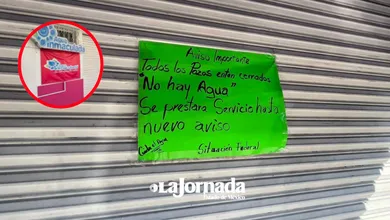 inmaculada
Aviso Importante
Todos los Pozos estan cerrados
"No hay Agua"
Se prestara Servicio hasta
nuevo aviso
Cuida el Agua
Situación Federal
LaJornada
Estado de México